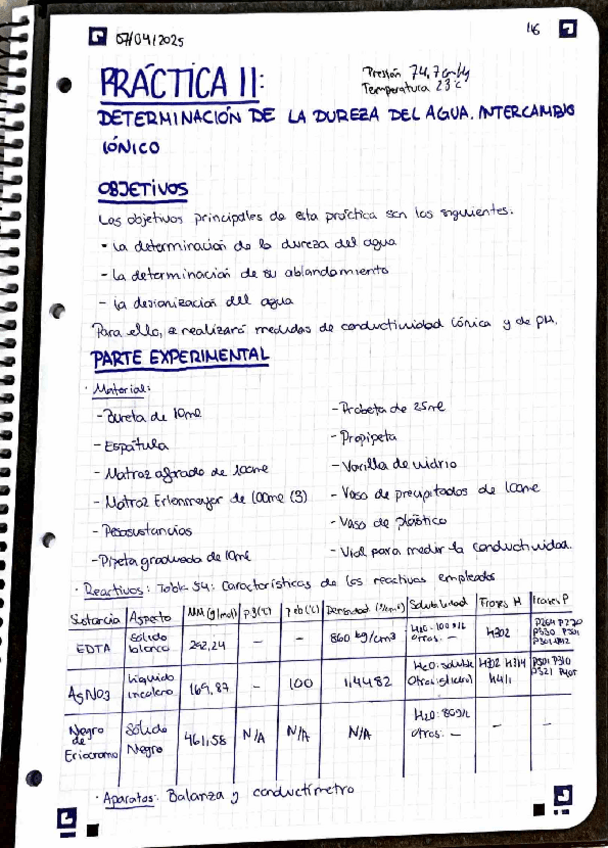 07/04/2025
PRÁCTICA 11:
Presión 74,7 cmHg
Temperatura 23°C
DETERMINACIÓN DE LA DUREZA DEL AGUA. INTERCAMBIO
IÓNICO
OBJETIVOS
Los objetivos principales de esta práctica son los siguientes.
- La determinación de la dureza del agua
- La determinación de su ablandamiento
- La desionización del agua
Para ello, se realizará medidas de conductividad iónica y de pH.
PARTE EXPERIMENTAL
· Material:
- Bureta de 10ml
- Espátula
- Matraz aforado de 100ml
- Matraz Erlenmeyer de 100ml (3)
- Pesasustancias
- Pipeta graduada de 10ml
- Probeta de 25ml
- Propipeta
- Varilla de vidrio
- Vaso de precipitados de 100ml
- Vaso de plástico
- Vial para medir la conductividad.
· Reactivos: Tabla 54: Características de los reactivos empleados
Sustancia Aspecto MM (g/mol) Densidad Solubilidad Frases H Frases P
EDTA Sólido blanco 292,24 - - 860 kg/cm3 H2O: 100 g/L Otros: - H302
AgNO3 Líquido incoloro 169,87 - 100 1,4482 H2O: soluble H302 H314 H411 P501 P310
Negro de Eriocromo Sólido Negro 461,58 N/A N/A N/A H2O: 80g/L Otros: - - -
· Aparatos: Balanza y conductímetro